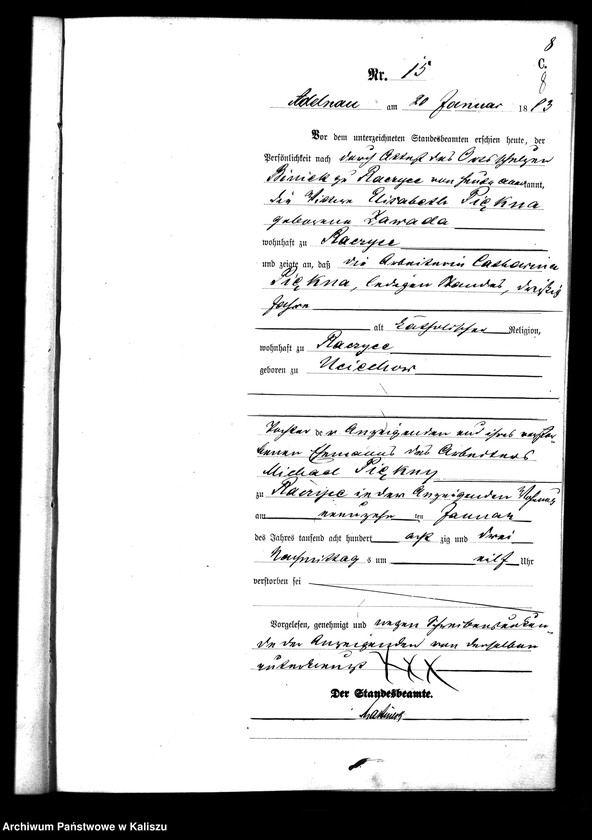 8
C.
8
Nr. 15
Adelnau am 20 Januar 1883
Vor dem unterzeichneten Standesbeamten erschien heute, der
Persönlichkeit nach durch Attest des Ortsschulzen
zu Raczyce von heute anerkannt,
die Wittwe Elisabeth Piękna
geborene Zawada
wohnhaft zu Raczyce
und zeigte an, daß die Arbeiterin Catharina
Piękna, ledigen Standes, dreißig
Jahre
alt katholischer Religion,
wohnhaft zu Raczyce
geboren zu Uciechow
Tochter der Anzeigenden und ihres verstor-
benen Ehemanns des Arbeiters
Michael Piękny
zu Raczyce in der Anzeigenden Wohnung
am neunzehnten Januar
des Jahres tausend acht hundert achtzig und drei
Nachmittags um eilf Uhr
verstorben sei
Vorgelesen, genehmigt und wegen Schreibensunkun-
de der Anzeigenden von derselben
unterkreuzt XXX
Der Standesbeamte.
Archiwum Państwowe w Kaliszu